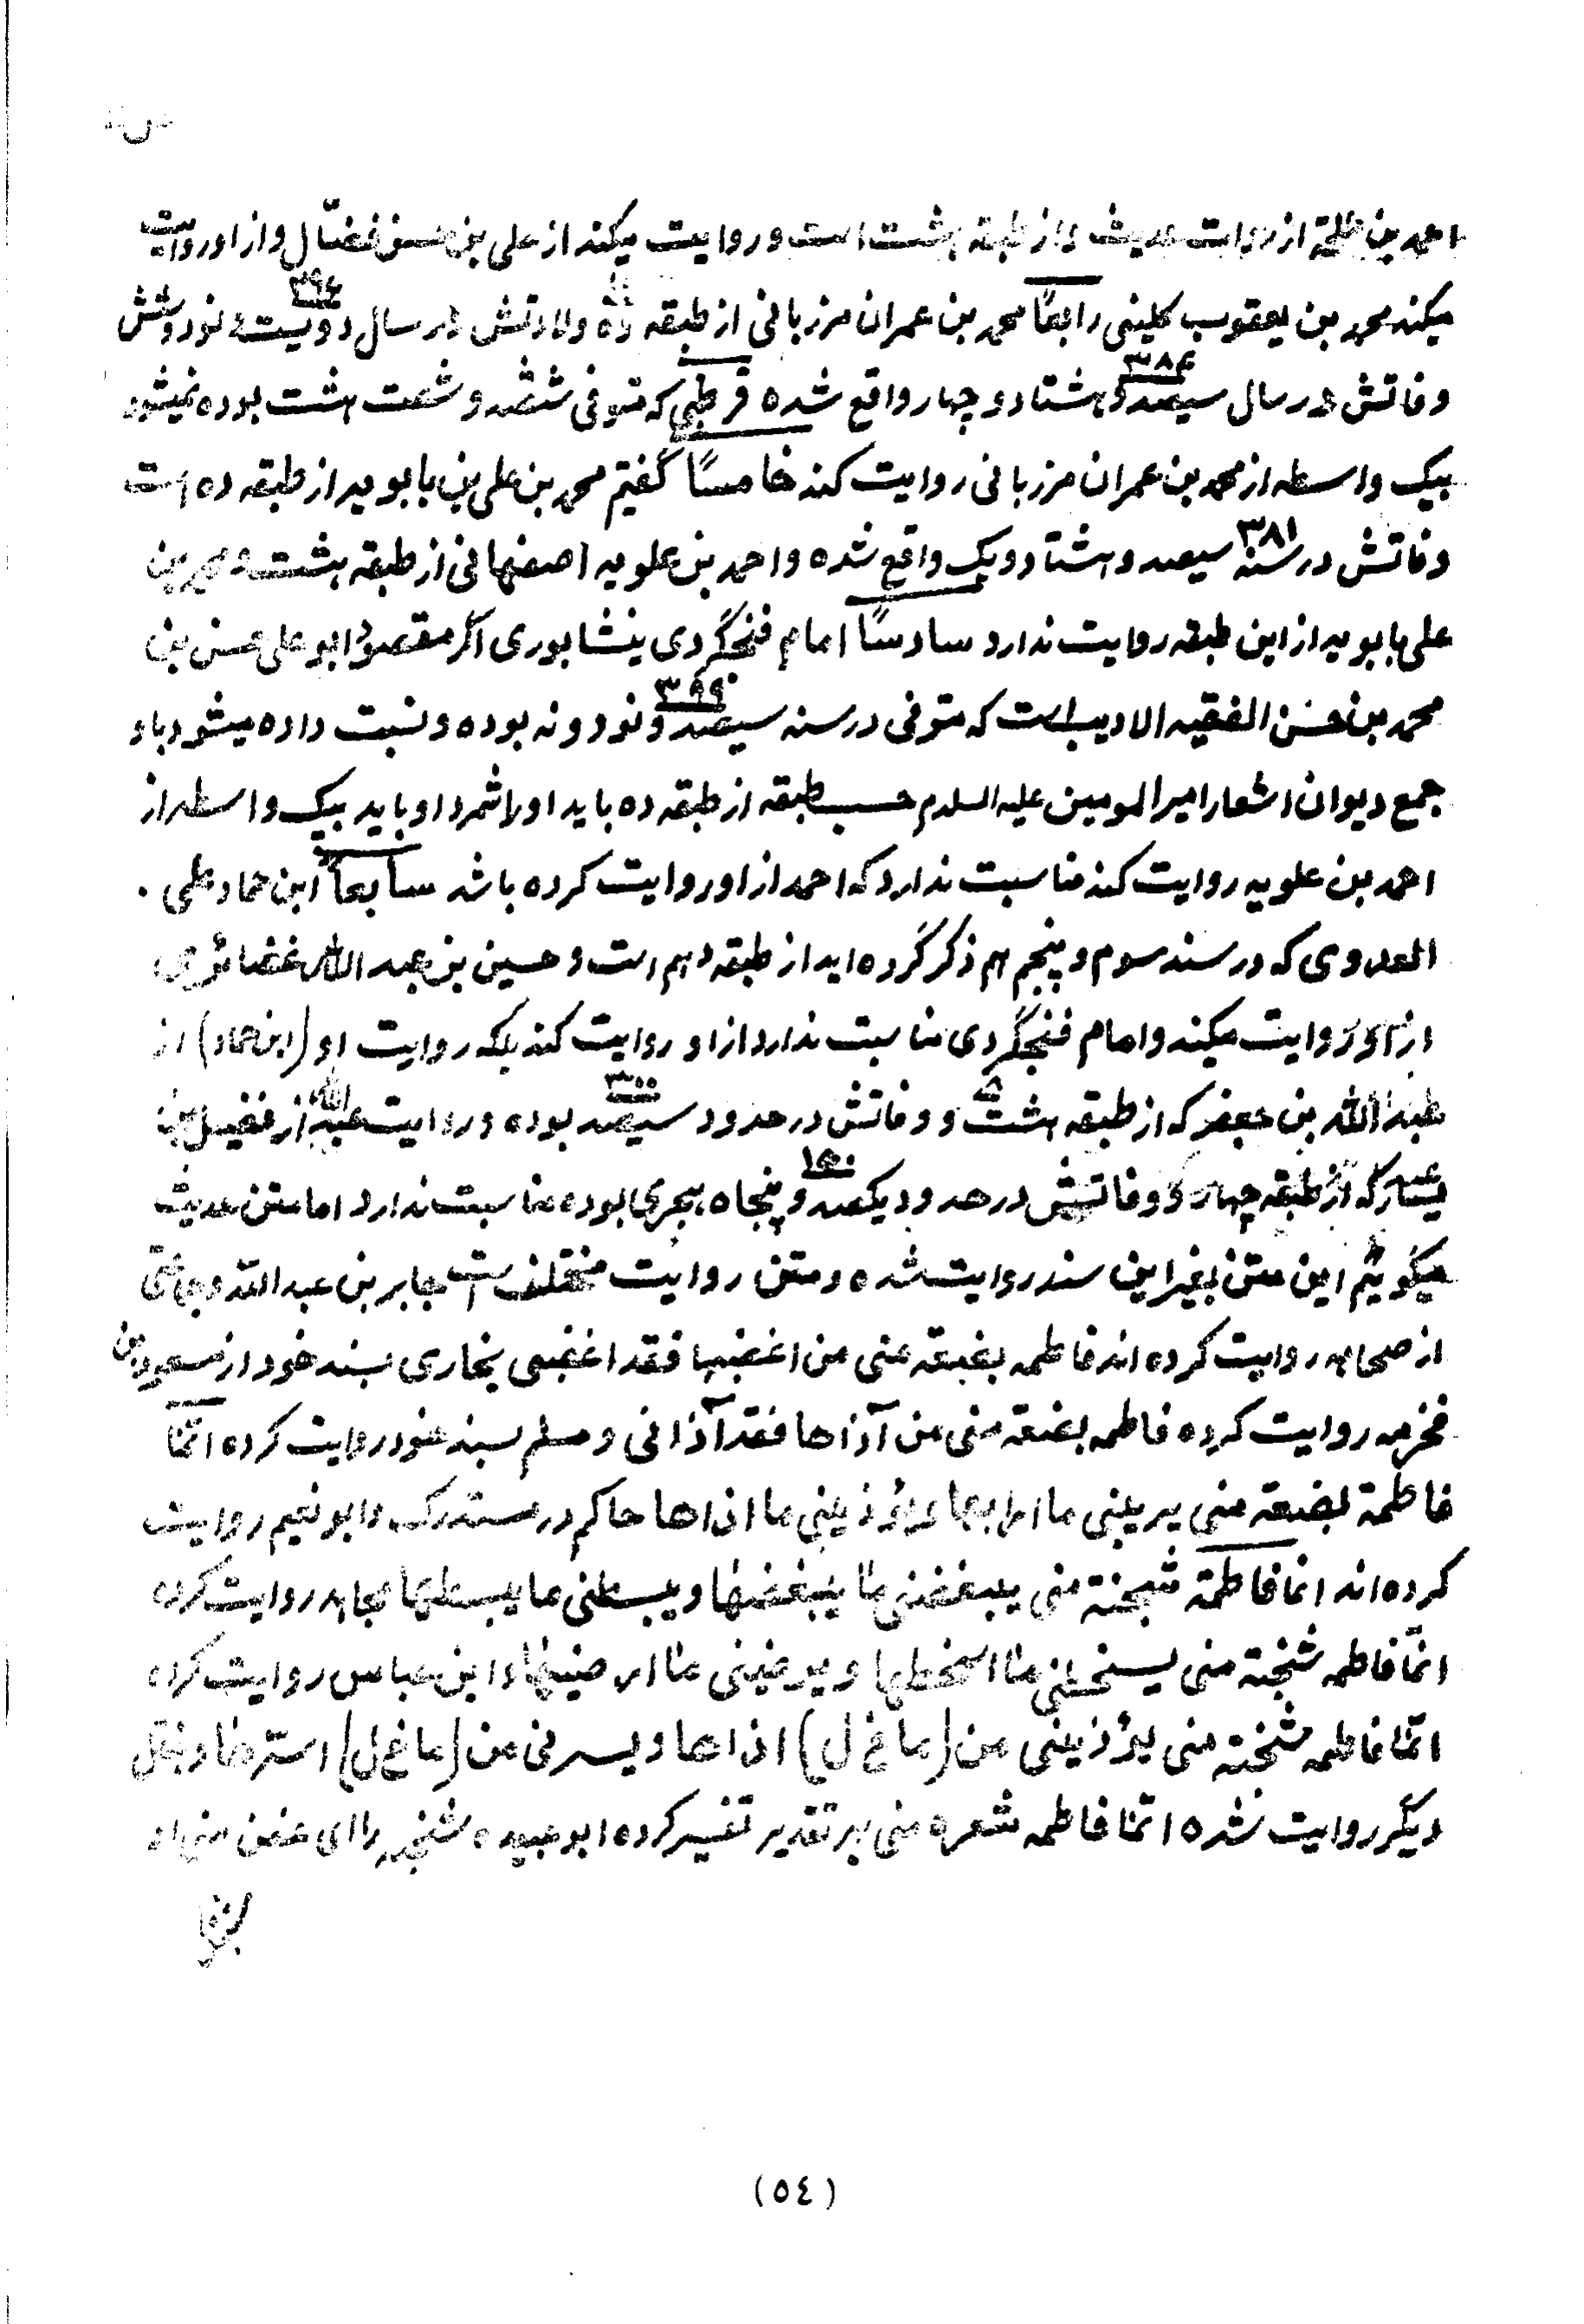 احمد بن طلحة از روات حدیث و از طبقه هشت است و روایت میکند از علی بن حسن فضّال و از او روایت
میکند محمد بن یعقوب کلینی رابعًا محمد بن عمران مرزبانی از طبقه ده ولادتش در سال دویست و نود و شش
۲۹۶
وفاتش در سال سیصد و هشتاد و چهار واقع شده قرطبی که متوفی ششصد و شصت هشت بوده نمیشود
۳۸۴
بیک واسطه از محمد بن عمران مرزبانی روایت کند خامسًا گفتیم محمد بن علی بن بابویه از طبقه ده است
وفاتش در سنه سیصد و هشتاد و یک واقع شده و احمد بن علویه اصفهانی از طبقه هشت و محمد بن
۳۸۱
علی بابویه از این طبقه روایت ندارد سادسًا امام فنجگردی ینشابوری اگر مقصود ابو علی حسن بن
محمد بن حسن الفقیه الادیب است که متوفی در سنه سیصد و نود و نه بوده و نسبت داده میشود باو
۳۹۹
جمع دیوان اشعار امیر المومین علیه السلام حسب طبقه از طبقه ده باید او را شمرد او باید بیک واسطه از
احمد بن علویه روایت کند مناسبت ندارد که احمد از او روایت کرده باشد سابعاً ابن حماد علی
العدوی که در سند سوم و پنجم هم ذکر کرده اید از طبقه دهم است و حسین بن عبد الله غضائری
از او روایت میکند و امام فنجگردی مناسبت ندارد از او روایت کند بلکه روایت او (ابن حماد) از
عبد الله بن جعفر که از طبقه هشت و وفاتش در حدود سیصد بوده و روایت عبد الله از فضیل بن
۸ ۳۰۰
یسار که از طبقه چهار و وفاتش در حدود یکصد و پنجاه هجری بوده مناسبت ندارد اما متن حدیث
۱۵۰
میگوئیم این متن بغیر این سند روایت شده و متن روایت مختلف است جابر بن عبد الله و جماعتی
از صحابه روایت کرده اند فاطمه بضعة منی من اغضبها فقد اغضبنی بخاری بسند خود از مسعود بن
مخرمه روایت کرده فاطمه بضعة منی من آذاها فقد آذانی و مسلم بسند خود روایت کرده انّما
فاطمة بضعة منی یریبنی ما ارابها و یؤذینی ما اذاها حاکم در مستدرک و ابو نعیم روایت
کرده اند انما فاطمة شجنة منی یبغضنی ما یبغضها و یبسطنی ما یبسطها مجاهد روایت کرده
انّما فاطمه شجنة منی یسخطنی ما اسخطها و یرضینی ما ارضیها و ابن عباس روایت کرده
انّما فاطمه شجنة منی یؤذینی من (ما خ ل) اذاها و یسرنی من (ما خ ل) استرها و بنقل
دیگر روایت شده انّما فاطمه شعره منی بر تقدیر تفسیر کرده ابو عبیده شجنه را ای غصن منی او
(٥٤)